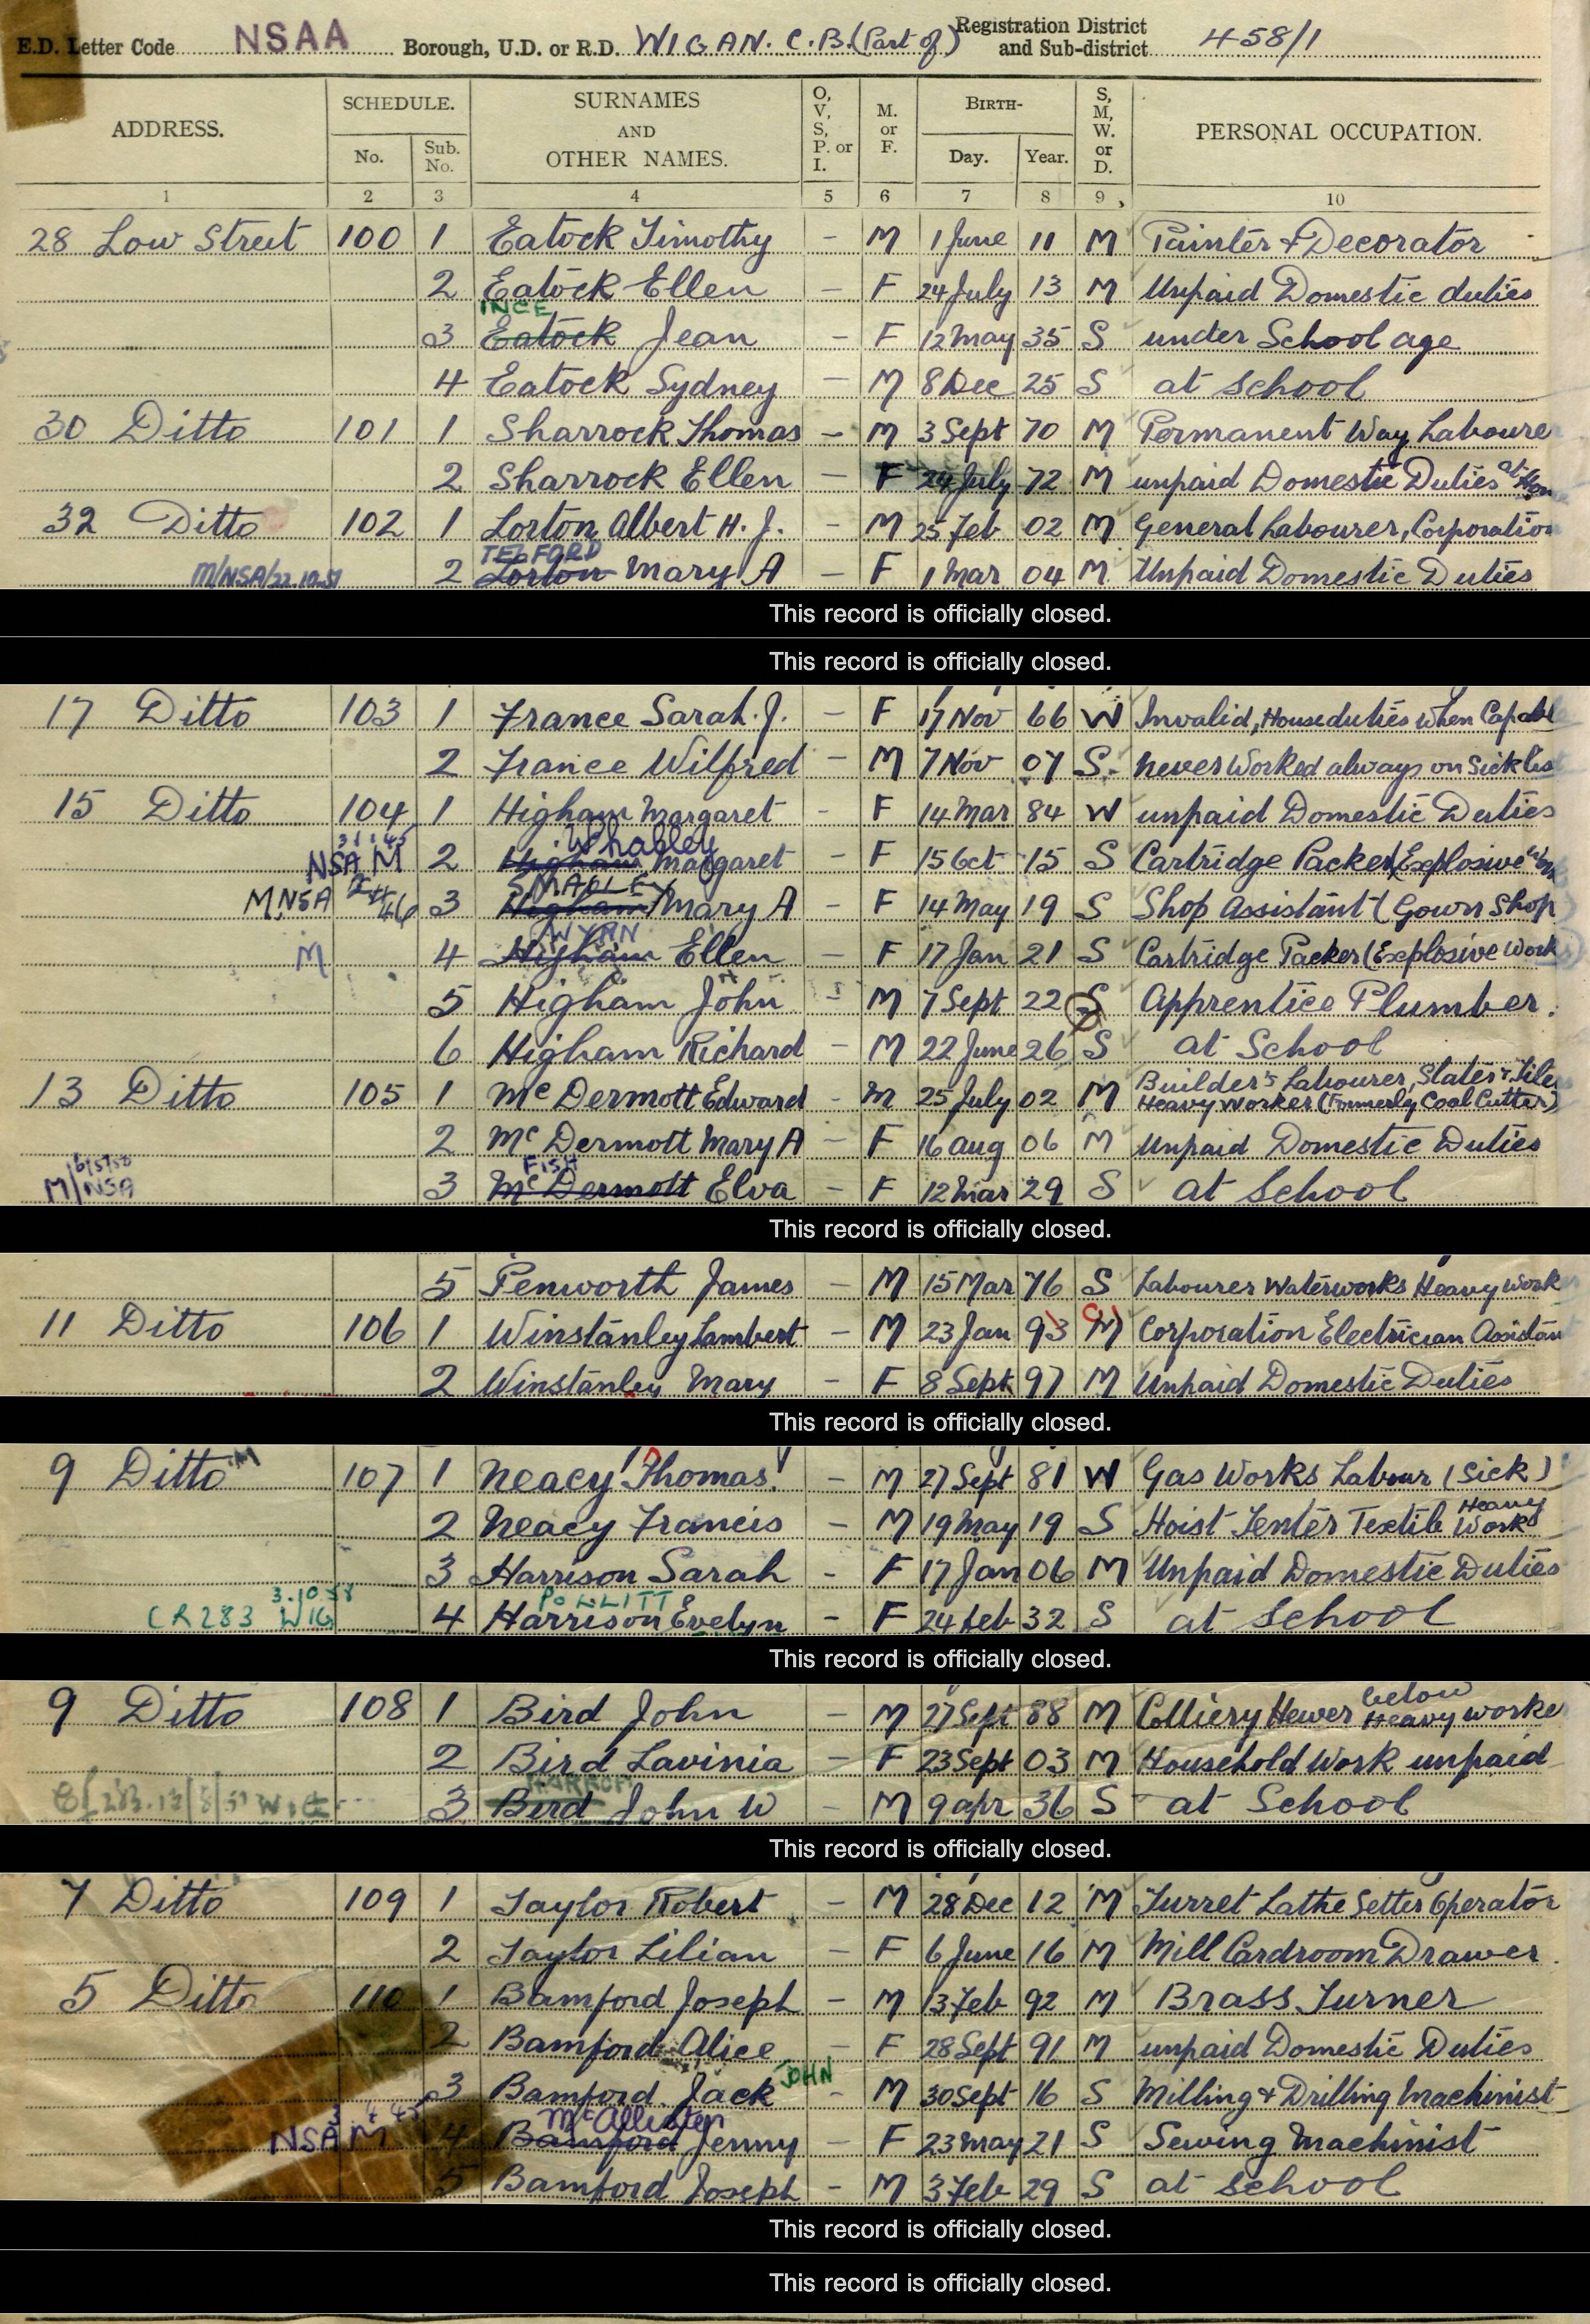 E.D. Letter Code NSAA Borough, U.D. or R.D. WIGAN. C.B. (Part of) Registration District and Sub-district 458/1
ADDRESS. SCHEDULE. No. Sub. No. SURNAMES AND OTHER NAMES. O, V, S, P. or I. M. or F. BIRTH- Day. Year. S, M, W. or D. PERSONAL OCCUPATION.
1 2 3 4 5 6 7 8 9 10
28 Low Street 100 1 Eatock Timothy - M 1 June 11 M Painter & Decorator
2 Eatock Ellen - F 24 July 13 M Unpaid Domestic duties
INCE
3 Eatock Jean - F 12 May 35 S under School age
4 Eatock Sydney - M 8 Dec 25 S at School
30 Ditto 101 1 Sharrock Thomas - M 3 Sept 70 M Permanent Way Laboure
2 Sharrock Ellen - F 24 July 72 M unpaid Domestic Duties at Hom
32 Ditto 102 1 Lorton Albert H. J. - M 25 Feb 02 M General Labourer, Corporation
TELFORD
M/NSA/22.10.51 2 Lorton Mary A - F 1 Mar 04 M Unpaid Domestic Duties
This record is officially closed.
This record is officially closed.
17 Ditto 103 1 France Sarah. J. - F 17 Nov 66 W Invalid, Houseduties when Capabl
2 France Wilfred - M 7 Nov 07 S. never Worked always on Sick list
15 Ditto 104 1 Higham Margaret - F 14 Mar 84 W unpaid Domestic Duties
Whabley
NSA M 2 Higham Margaret - F 15 Oct 15 S Cartridge Packer (Explosive Work
SMALLEY
M.NSA 46 3 Higham Mary A - F 14 May 19 S Shop Assistant (Gown Shop
WYNN
M 4 Higham Ellen - F 17 Jan 21 S Cartridge Packer (Explosive Work
5 Higham John - M 7 Sept 22 S Apprentice Plumber.
6 Higham Richard - M 22 June 26 S at School
13 Ditto 105 1 McDermott Edward - M 25 July 02 M Builder's Labourer, Slater & Tiler
Heavy Worker (Formerly Coal Cutter)
2 McDermott Mary A - F 16 Aug 06 M Unpaid Domestic Duties
FISH
M/NSA 3 McDermott Elva - F 12 Mar 29 S at School
This record is officially closed.
5 Penworth James - M 15 Mar 76 S Labourer Waterworks Heavy Work
11 Ditto 106 1 Winstanley Lambert - M 23 Jan 93 M Corporation Electrician Assistan
2 Winstanley Mary - F 8 Sept 97 M Unpaid Domestic Duties
This record is officially closed.
9 Ditto 107 1 Neacy Thomas - M 27 Sept 81 W Gas Works Labour (Sick)
2 Neacy Francis - M 19 May 19 S Hoist Tenter Textile Heavy Work
3 Harrison Sarah - F 17 Jan 06 M Unpaid Domestic Duties
3.10.58 POLLITT
CR283 WIG 4 Harrison Evelyn - F 24 Feb 32 S at School
This record is officially closed.
9 Ditto 108 1 Bird John - M 27 Sept 88 M Colliery Hewer below Heavy worke
2 Bird Lavinia - F 23 Sept 03 M Household Work unpaid
3 Bird John W - M 9 Apr 36 S at School
This record is officially closed.
7 Ditto 109 1 Taylor Robert - M 28 Dec 12 M Turret Lathe Setter Operator
2 Taylor Lilian - F 6 June 16 M Mill Cardroom Drawer
5 Ditto 110 1 Bamford Joseph - M 13 Feb 92 M Brass Turner
2 Bamford Alice - F 28 Sept 91 M unpaid Domestic Duties
JOHN
3 Bamford Jack - M 30 Sept 16 S Milling & Drilling Machinist
McAllister
NSA M 4 Bamford Jenny - F 23 May 21 S Sewing Machinist
5 Bamford Joseph - M 3 Feb 29 S at School
This record is officially closed.
This record is officially closed.